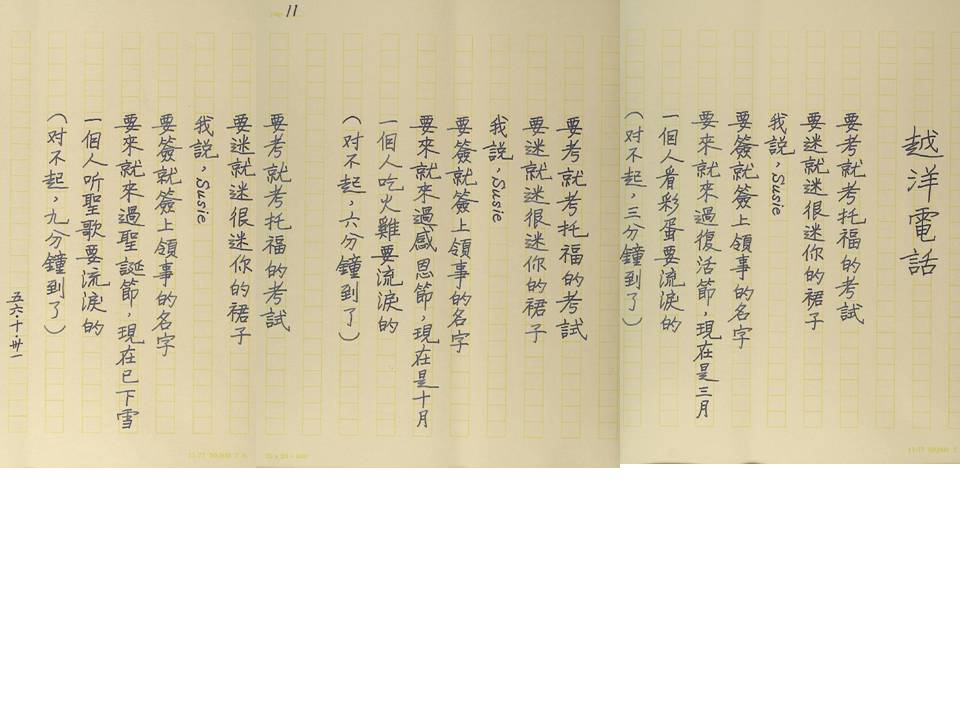 越洋電話
要考就考托福的考試
要迷就迷很迷你的裙子
我說，Susie
要簽就簽上領事的名字
要來就來過復活節，現在是三月
一個人看彩蛋要流淚的
（对不起，三分鐘到了）
11
要考就考托福的考試
要迷就迷很迷你的裙子
我說，Susie
要簽就簽上領事的名字
要來就來過感恩節，現在是十月
一個人吃火雞要流淚的
（对不起，六分鐘到了）
要考就考托福的考試
要迷就迷很迷你的裙子
我說，Susie
要簽就簽上領事的名字
要來就來過聖誕節，現在已下雪
一個人听聖歌要流淚的
（对不起，九分鐘到了）
五六·十·卅一